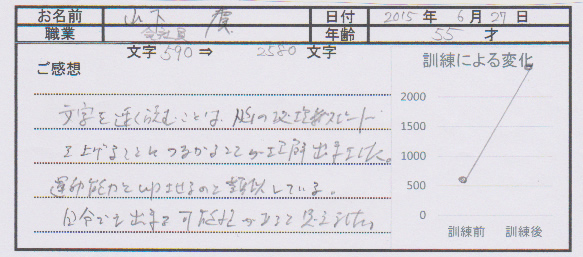 お名前 山下 日付 2015 年 6 月 27 日
職業 会社員 年齢 55 才
文字 590 ⇒ 2580 文字
ご感想
訓練による変化
文字を速く読むことは、脳の処理スピード
を上げることにつながることが理解出来ました。
運動能力を向上させるのと類似している。
自分でも出来る可能性があると思えました
2000
1500
1000
500
0
訓練前 訓練後